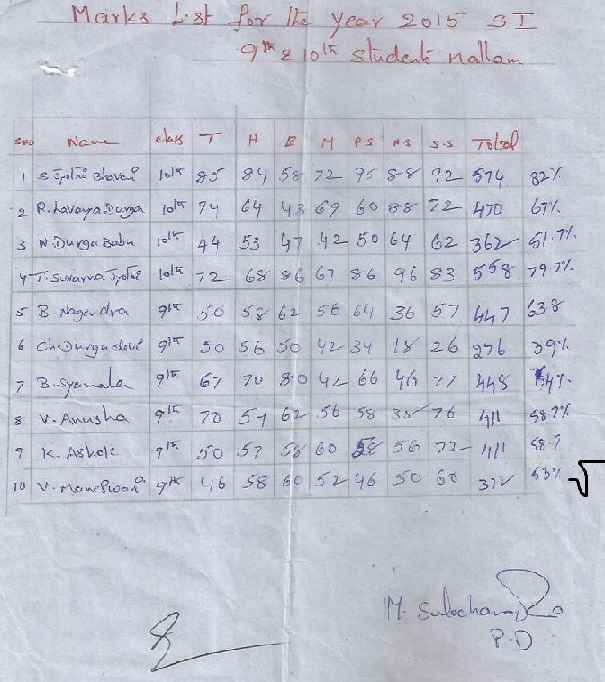 Marks List for the year 2015 SI
9th & 10th students Nallam
Sno Name class T H E M P.S N.S S.S Total
1 S Jyothi Bhavani 10th 85 84 58 72 95 88 92 574 82%
2 R. Lavanya Durga 10th 74 64 43 69 60 88 72 470 67%
3 N. Durga Babu 10th 44 53 47 42 50 64 62 362 51.7%
4 T. Suvarna Jyothi 10th 72 68 86 67 86 96 83 558 79.7%
5 B Nagendra 9th 50 58 62 56 64 36 57 447 63.8
6 Ch. Durga devi 9th 50 56 50 42 34 18 26 276 39%
7 B. Syamala 9th 67 70 80 42 66 46 77 448
8 V. Anusha 9th 70 54 62 56 58 35 76 411 58.7%
9 K. Ashok 9th 50 57 58 60 58 56 72 411 58.7
10 V. 9th 46 58 60 52 46 50 60 372 53%
M.
P.D